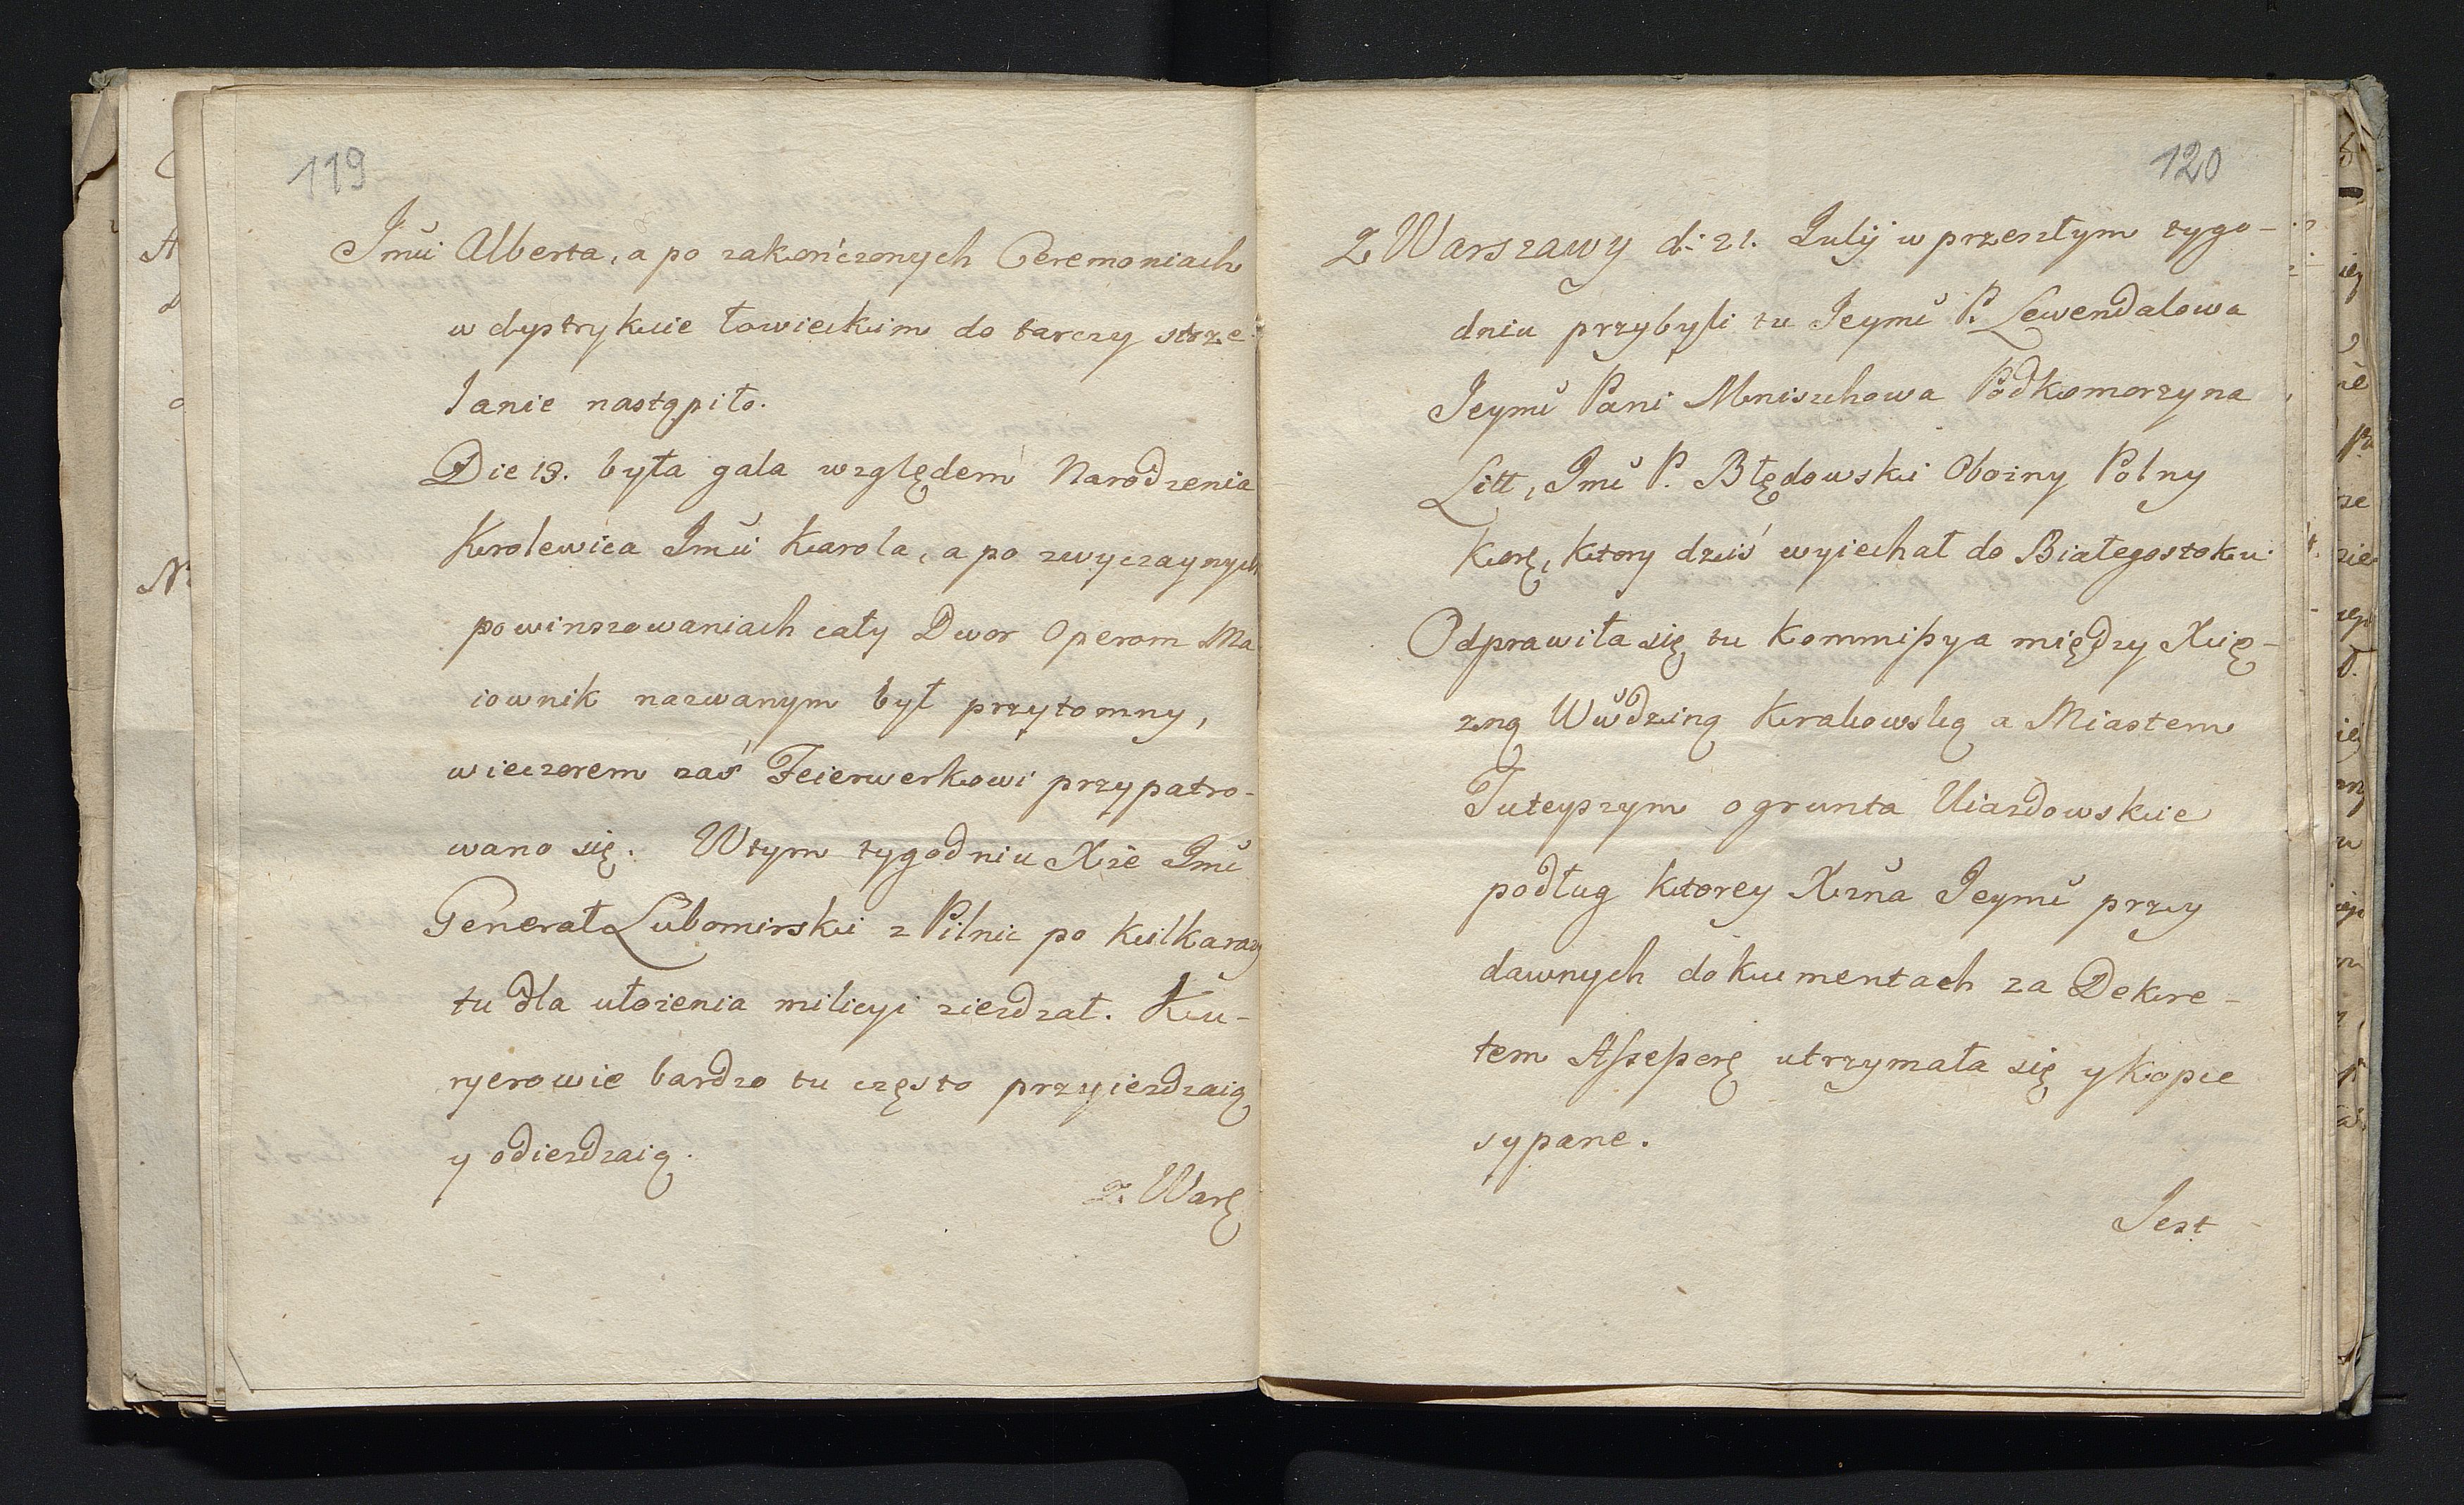 119
Jmći Alberta, a po zakończonych Ceremoniach
w dystrykcie łowieckim do tarczy strze-
lanie nastąpiło.
Die 13. była gala względem Narodzenia
Krolewica Jmći Karola, a po zwyczaynych
powinszowaniach cały Dwor Operom Ma
iownik nazwanym był przytomny,
wieczorem zaś Feierwerkowi przypatro-
wano się. W tym tygodniu Xże Jmć
Generał Lubomirski z Pilnic po kilka razy
tu dla ułożenia milicyi zieżdzał. Ku-
ryerowie bardzo tu często przyieżdzaią
y odieżdzaią.
z Warę
120
Z Warszawy d: 21. Julÿ w przeszłym tygo-
dniu przybyli tu Jeymć P. Lewendalowa
Jeymć Pani Mniszchowa Podkomorzyna
Litt, Jmć P. Błędowski Obozny Polny
Korę, ktory dziś wyiechał do Białegostoku.
Odprawiła się tu Kommißya między Xię-
zną Wwdziną Krakowską a Miastem
Tuteyszym o grunta Uiazdowskie
podług ktorey Xżna Jeymć przy
dawnych dokumentach za Dekre-
tem Aßeßorę utrzymała się y kopce
sypane.
Jest